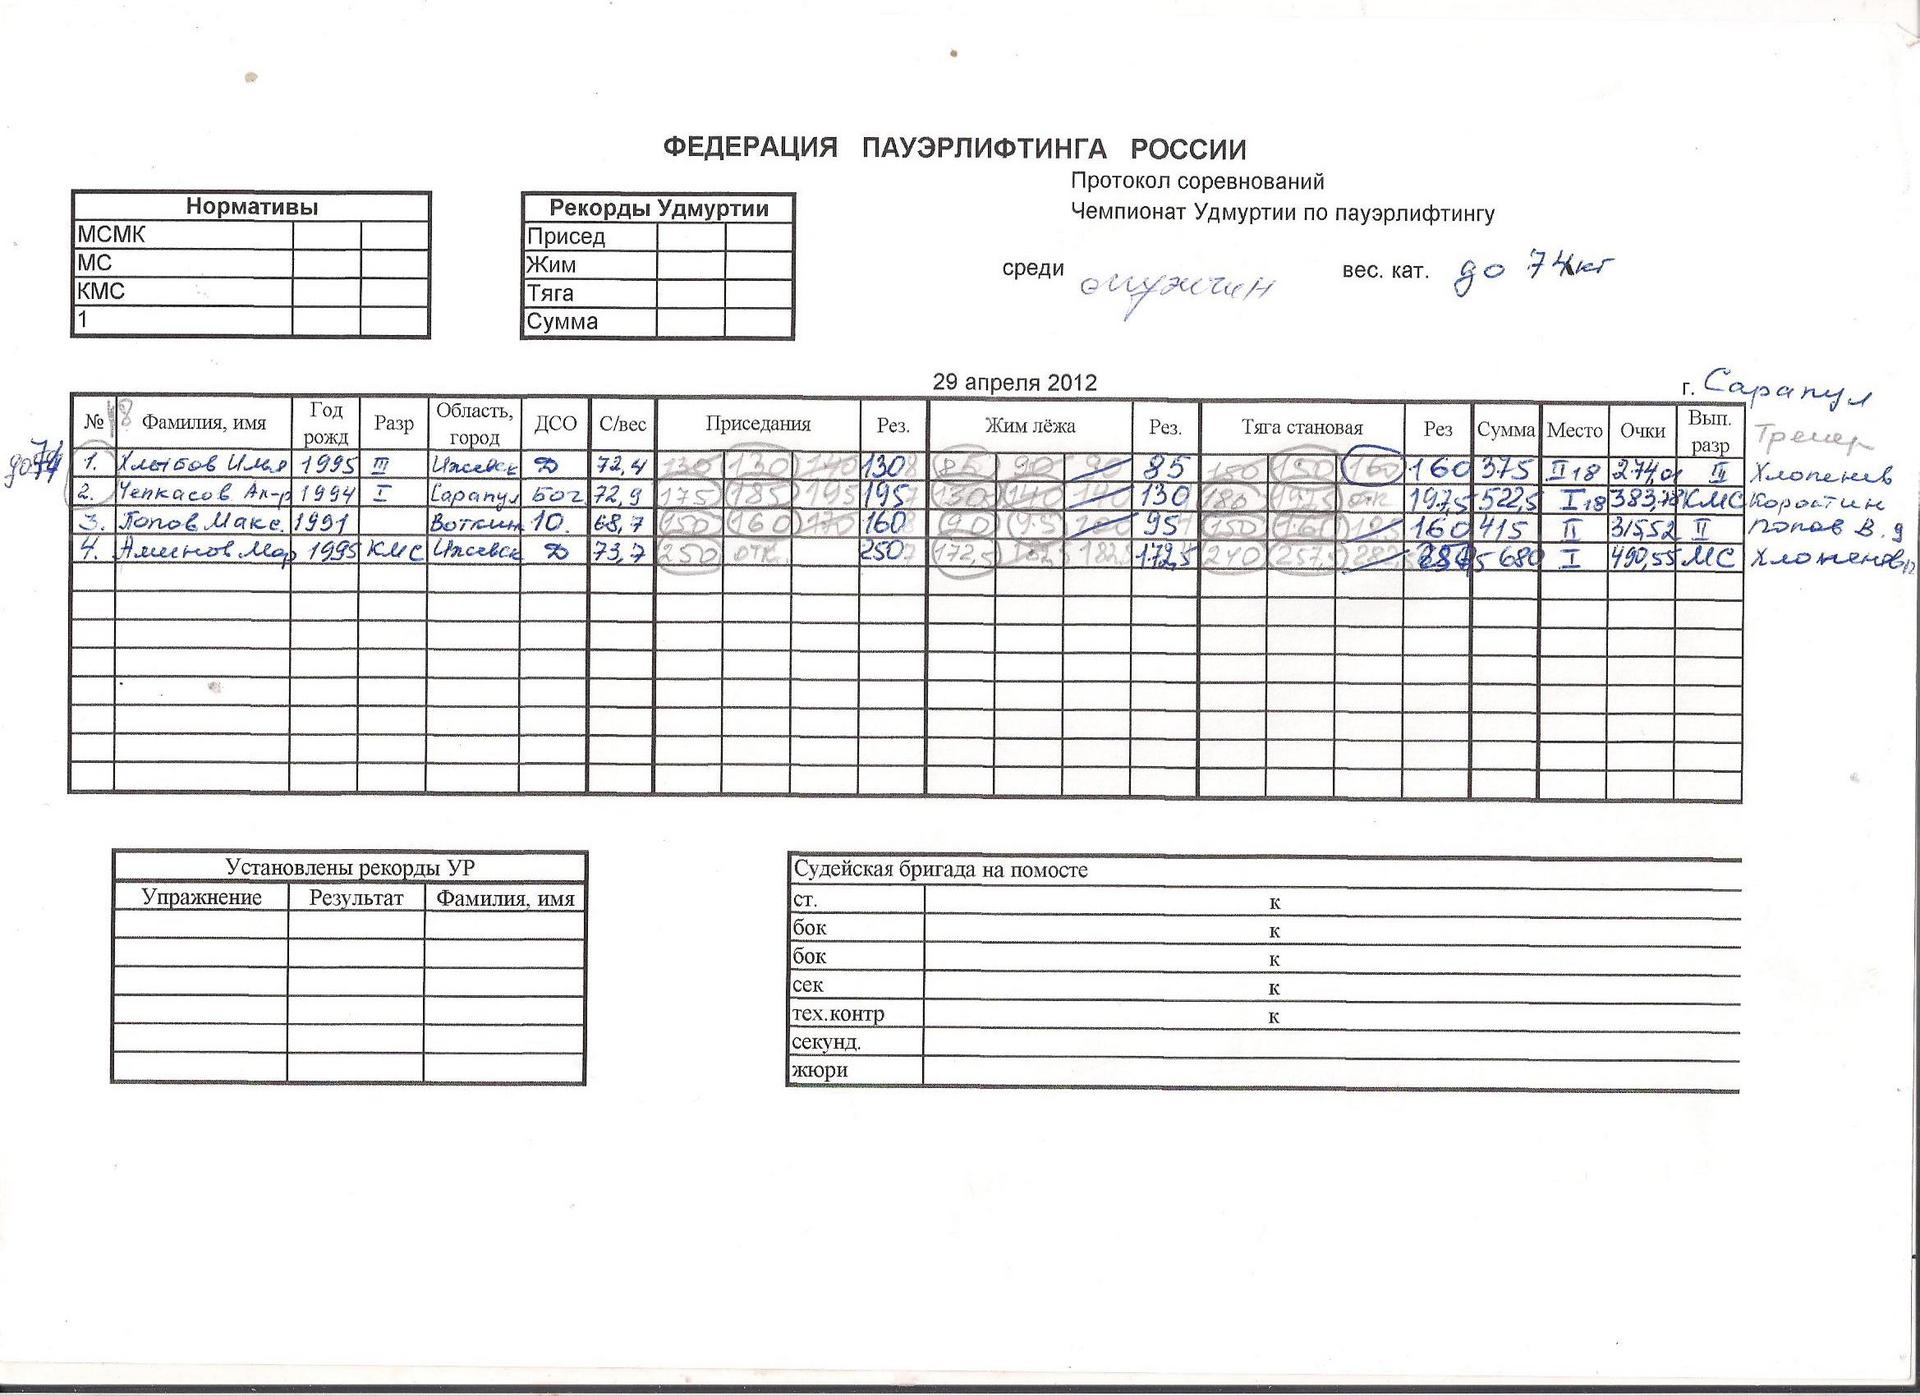 ФЕДЕРАЦИЯ ПАУЭРЛИФТИНГА РОССИИ
Протокол соревнований
Чемпионат Удмуртии по пауэрлифтингу
среди мужчин вес. кат. до 74кг
Нормативы
МСМК
МС
КМС
1
Рекорды Удмуртии
Присед
Жим
Тяга
Сумма
29 апреля 2012
г. Сарапул
№ Фамилия, имя Год рожд Разр Область, город ДСО С/вес Приседания Рез. Жим лёжа Рез. Тяга становая Рез Сумма Место Очки Вып. разр Тренер
до 74
1. Хлыбов Илья 1995 III Ижевск Д 72,4 130 130 140 130 85 90 90 85 150 150 160 160 375 II 18 274,01 III
2. Чепкасов Ал-р 1994 I Сарапул Бог 72,9 175 185 195 195 130 140 140 130 180 197,5 отк 197,5 522,5 I 18 383,78 КМС Коростин
3. Попов Макс. 1991 Воткин 10. 68,7 150 160 170 160 90 95 100 95 150 160 160 415 II 315,52 II Попов В.
4. Аминов Мар 1995 КМС Ижевск Д 73,7 250 отк. 250 172,5 182,5 172,5 240 257,5 680 I 490,55 МС
Установлены рекорды УР
Упражнение Результат Фамилия, имя
Судейская бригада на помосте
ст. к
бок к
бок к
сек к
тех.контр к
секунд.
жюри